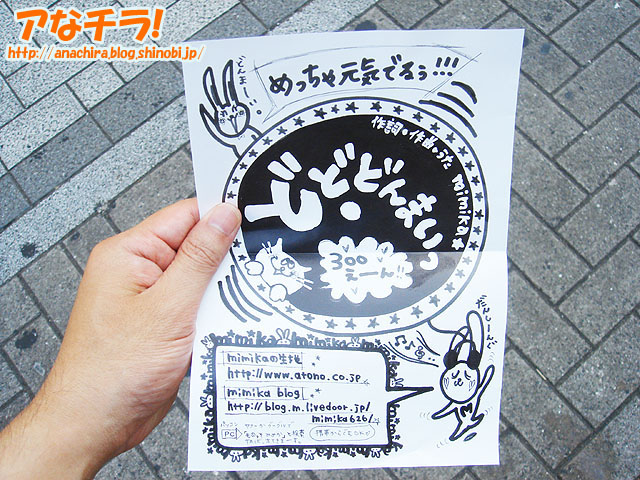 アなチラ!
http://anachira.blog.shinobi.jp/
どんまーい
めっちゃ元気でるぅ!!!
作詞・作曲・うた mimika☆
ど・どどんまいっ
300
えーん!!
mimika mimika mimika
mimikaの生地
http://www.atono.co.jp
mimika blog
http://blog.m.livedoor.jp/
mimika626/
PC